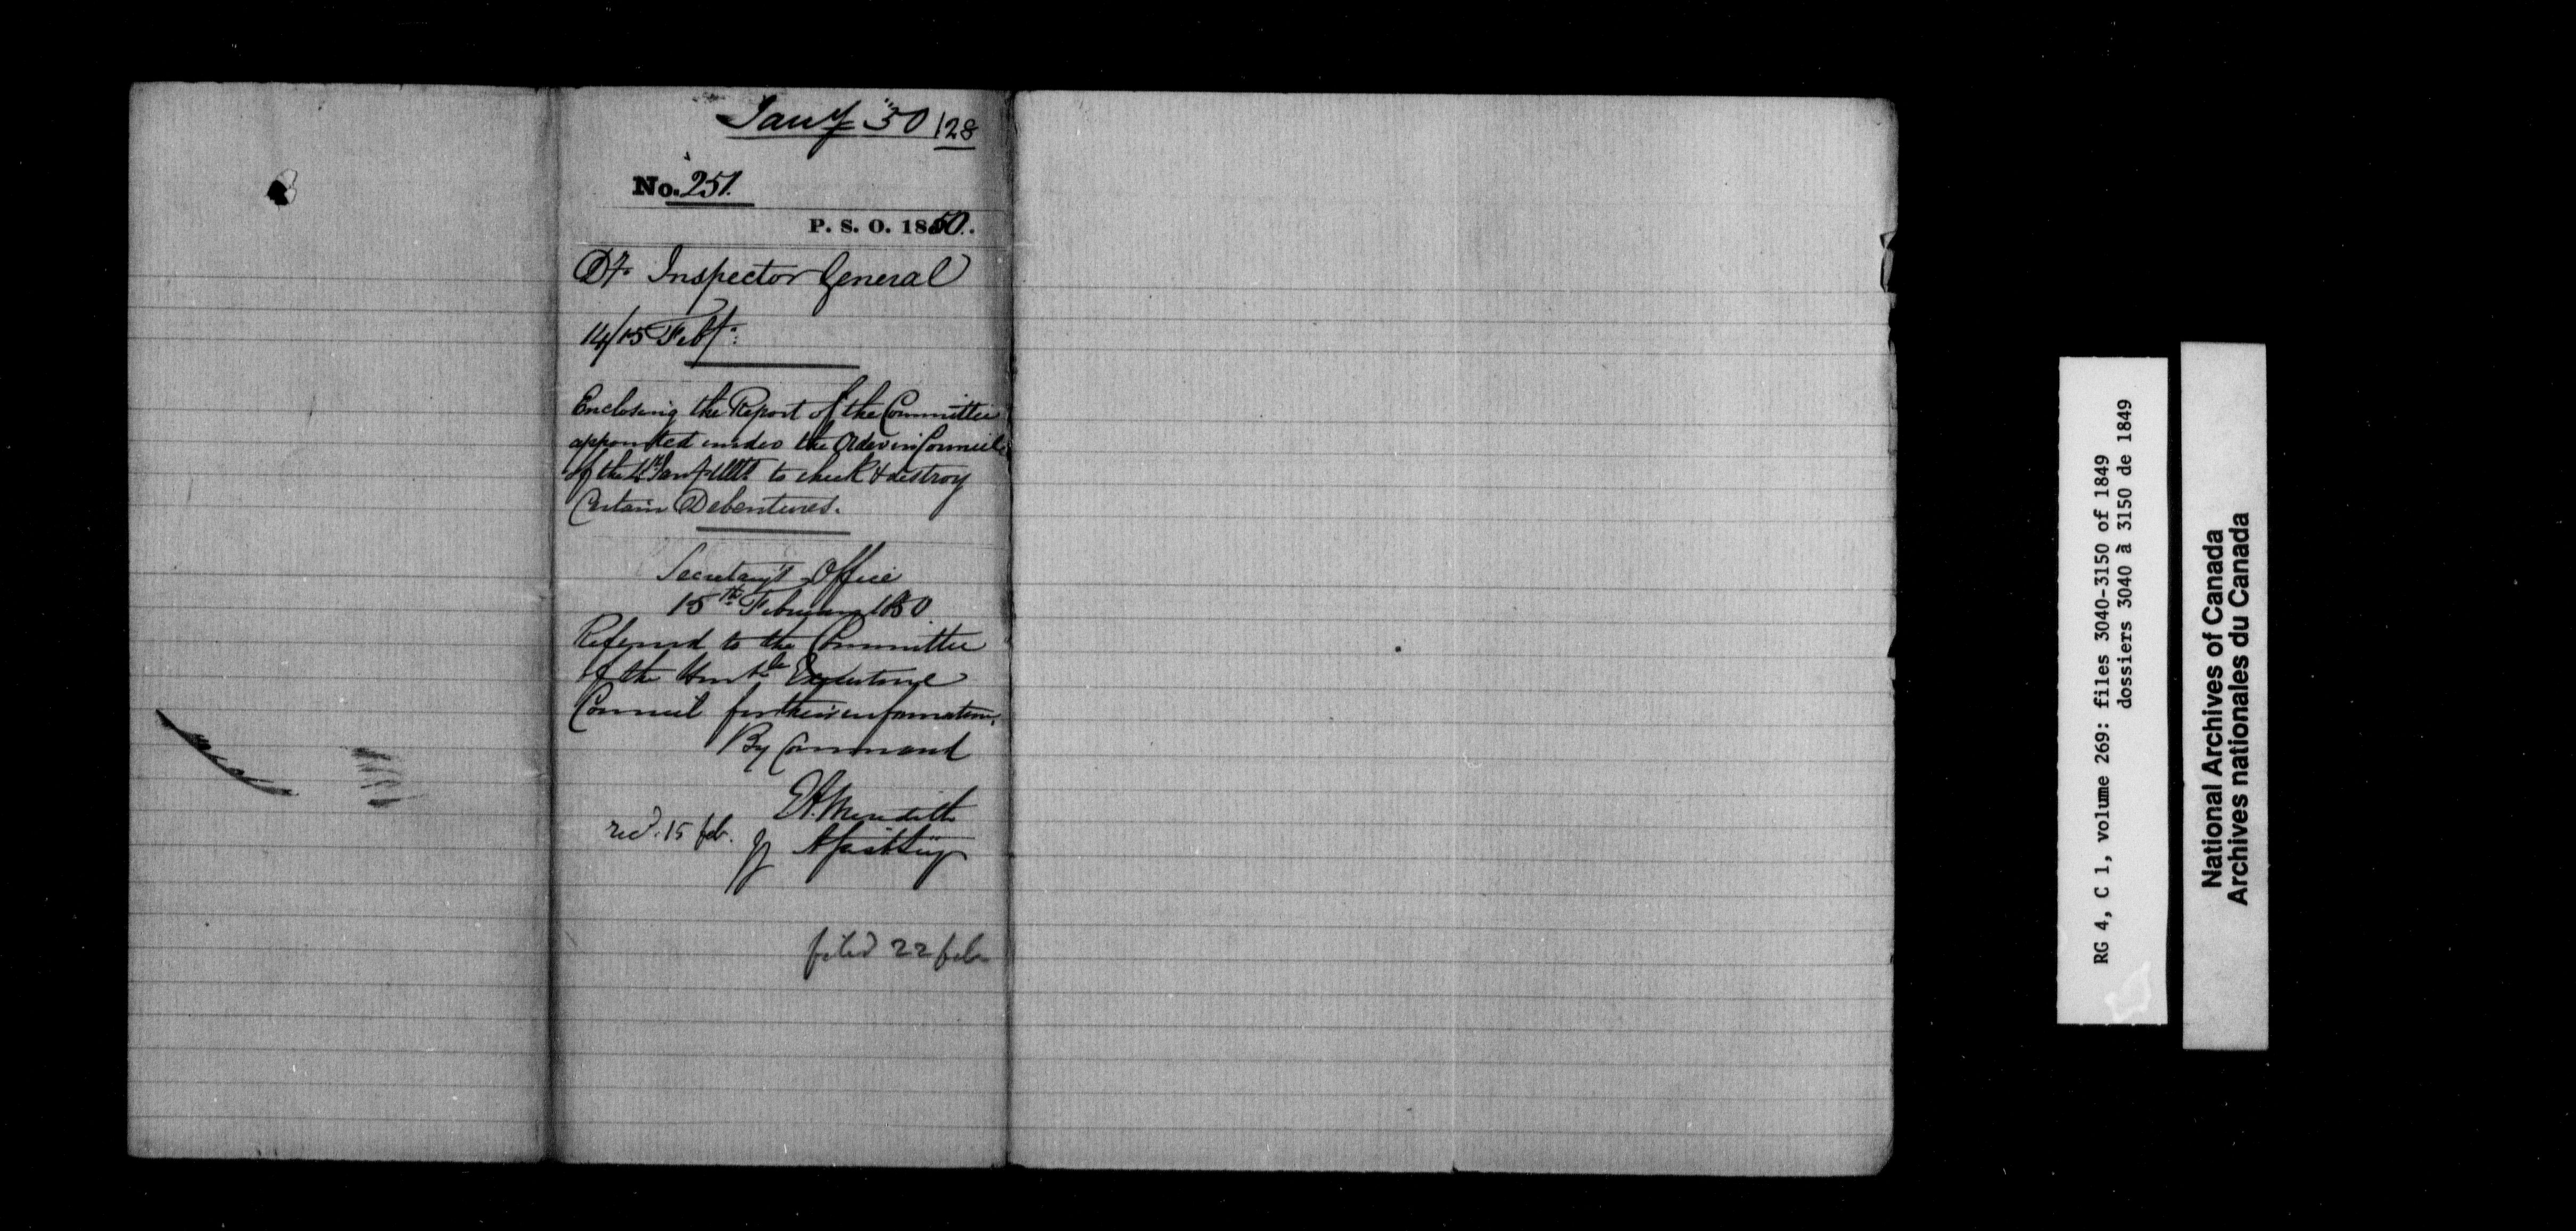 Jany 50 128
No. 251.
P. S. O. 1850.
Dy. Inspector General
14/15 Feby:
Enclosing the Report of the Committee
appointed under the Order in Council
of the 4th Jany ulto. to check & destroy
Certain Debentures.
Secretary's Office
15th February 1850
Referred to the Committee
of the Honble Executive
Council for their information,
By Command
E A. Meredith
recd. 15 feb.
Asst Secy
filed 22 feb
RG 4, C 1, volume 269: files 3040-3150 of 1849
dossiers 3040 à 3150 de 1849
National Archives of Canada
Archives nationales du Canada